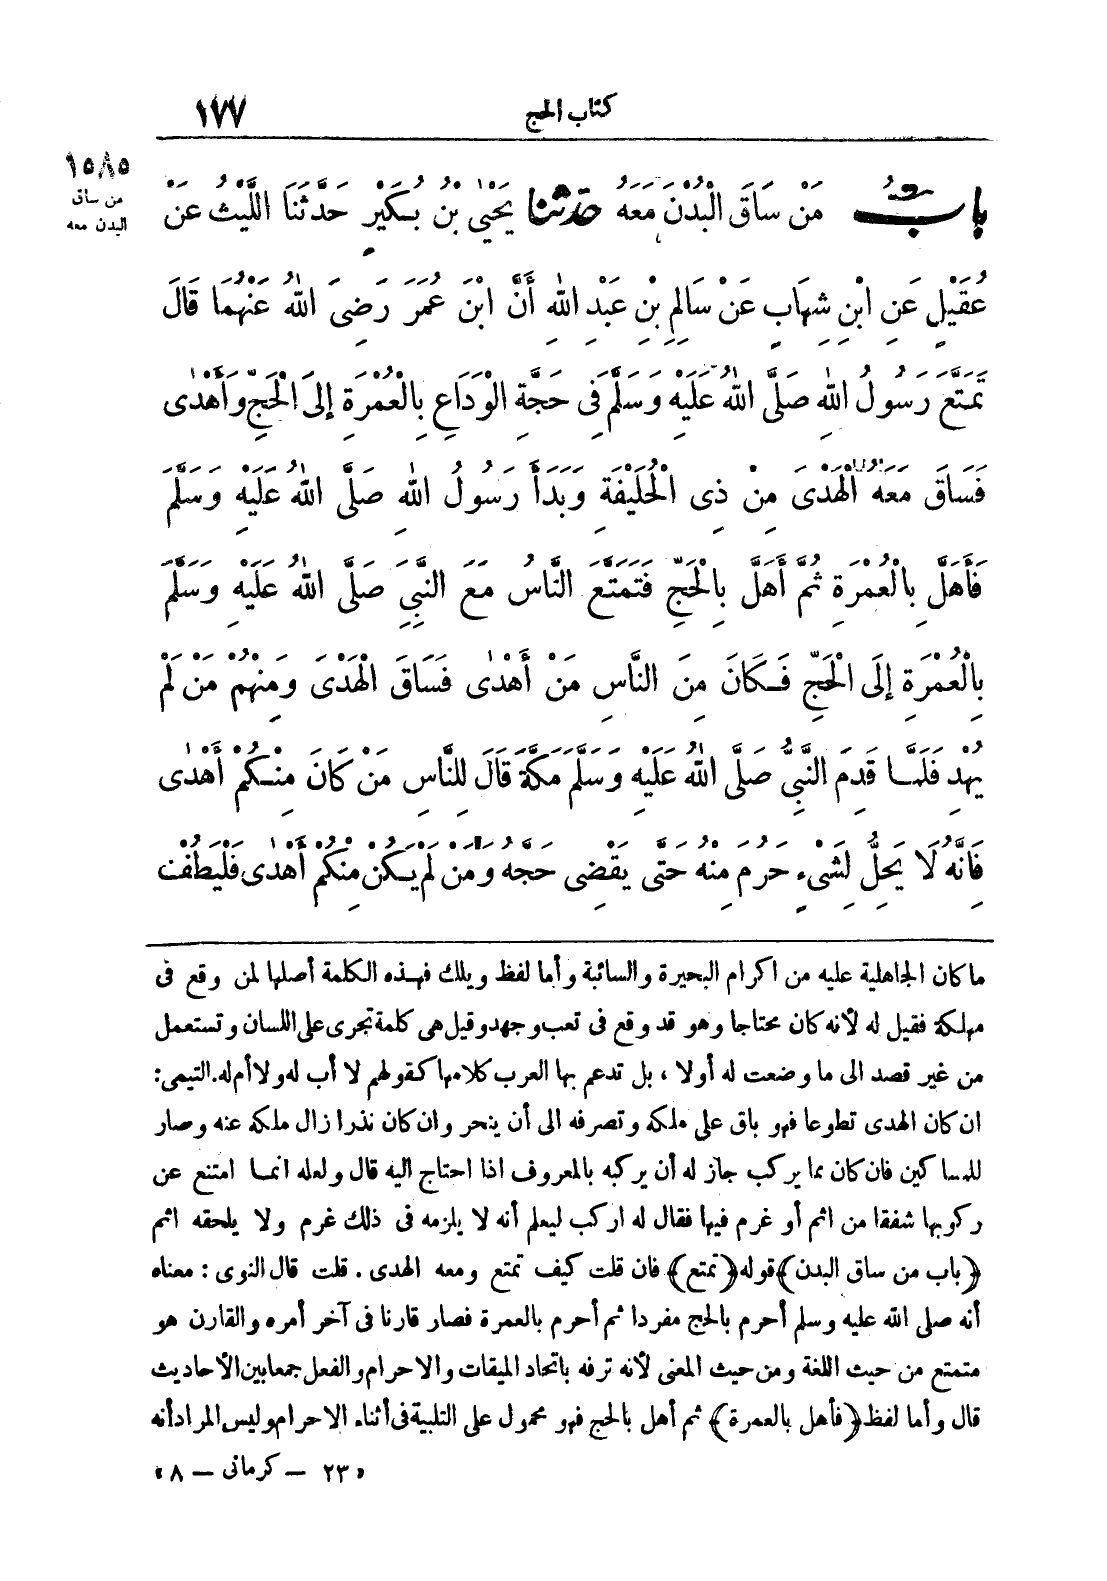 كتاب الحج
١٧٧
١٥٨٥
من ساق
البدن معه
بابُ مَنْ سَاقَ الْبُدْنَ مَعَهُ حدثنا يَحْيَى بْنُ بُكَيْرٍ حَدَّثَنَا اللَّيْثُ عَنْ
عُقَيْلٍ عَنِ ابْنِ شِهَابٍ عَنْ سَالِمِ بْنِ عَبْدِ اللهِ أَنَّ ابْنَ عُمَرَ رَضِىَ اللهُ عَنْهُمَا قَالَ
تَمَتَّعَ رَسُولُ اللهِ صَلَّى اللهُ عَلَيْهِ وَسَلَّمَ فِى حَجَّةِ الْوَدَاعِ بِالْعُمْرَةِ إِلَى الْحَجِّ وَأَهْدَى
فَسَاقَ مَعَهُ الْهَدْىَ مِنْ ذِى الْحُلَيْفَةِ وَبَدَأَ رَسُولُ اللهِ صَلَّى اللهُ عَلَيْهِ وَسَلَّمَ
فَأَهَلَّ بِالْعُمْرَةِ ثُمَّ أَهَلَّ بِالْحَجِّ فَتَمَتَّعَ النَّاسُ مَعَ النَّبِيِّ صَلَّى اللهُ عَلَيْهِ وَسَلَّمَ
بِالْعُمْرَةِ إِلَى الْحَجِّ فَكَانَ مِنَ النَّاسِ مَنْ أَهْدَى فَسَاقَ الْهَدْىَ وَمِنْهُمْ مَنْ لَمْ
يُهْدِ فَلَمَّا قَدِمَ النَّبِيُّ صَلَّى اللهُ عَلَيْهِ وَسَلَّمَ مَكَّةَ قَالَ لِلنَّاسِ مَنْ كَانَ مِنْكُمْ أَهْدَى
فَإِنَّهُ لَا يَحِلُّ لِشَىْءٍ حَرُمَ مِنْهُ حَتَّى يَقْضِىَ حَجَّهُ وَمَنْ لَمْ يَكُنْ مِنْكُمْ أَهْدَى فَلْيَطُفْ
ما كان الجاهلية عليه من اكرام البحيرة والسائبة وأما لفظ ويلك فهذه الكلمة أصلها لمن وقع فى
مهلكة فقيل له لأنه كان محتاجا وهو قد وقع فى تعب وجهد وقيل هى كلمة تجرى على اللسان وتستعمل
من غير قصد الى ما وضعت له أولا ، بل تدعم بها العرب كلامها كقولهم لا أب له ولا أم له. التيمى:
ان كان الهدى تطوعا فهو باق على ملكه وتصرفه الى أن ينحر وان كان نذرا زال ملكه عنه وصار
للمساكين فان كان مما يركب جاز له أن يركبه بالمعروف اذا احتاج اليه قال ولعله انما امتنع عن
ركوبها شفقا من اثم أو غرم فيها فقال له اركب ليعلم أنه لا يلزمه فى ذلك غرم ولا يلحقه اثم
﴿باب من ساق البدن﴾ قوله ﴿تمتع﴾ فان قلت كيف تمتع ومعه الهدى . قلت قال النوى : معناه
أنه صلى الله عليه وسلم أحرم بالحج مفردا ثم أحرم بالعمرة فصار قارنا فى آخر أمره والقارن هو
متمتع من حيث اللغة ومن حيث المعنى لأنه ترفه باتحاد الميقات والاحرام والفعل جمعا بين الأحاديث
قال وأما لفظ ﴿فأهل بالعمرة﴾ ثم أهل بالحج فهو محمول على التلبية فى أثناء الاحرام وليس المراد أنه
«٢٣ – كرمانى – ٨»